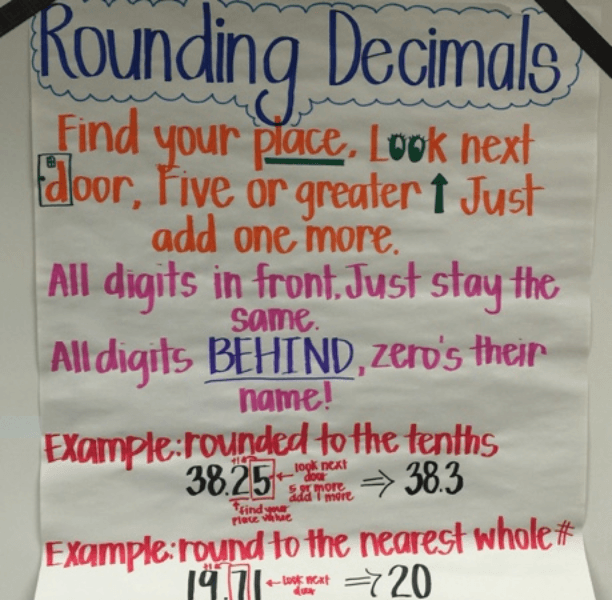 Rounding Decimals
Find your place. Look next
door, Five or greater ↑ Just
add one more.
All digits in front, Just stay the
same.
All digits BEHIND, zero's their
name!
Example: rounded to the tenths
38.25 ← look next door 5 or more add 1 more ⇒ 38.3
↑ find your place value
Example: round to the nearest whole #
19.71 ← look next door ⇒ 20